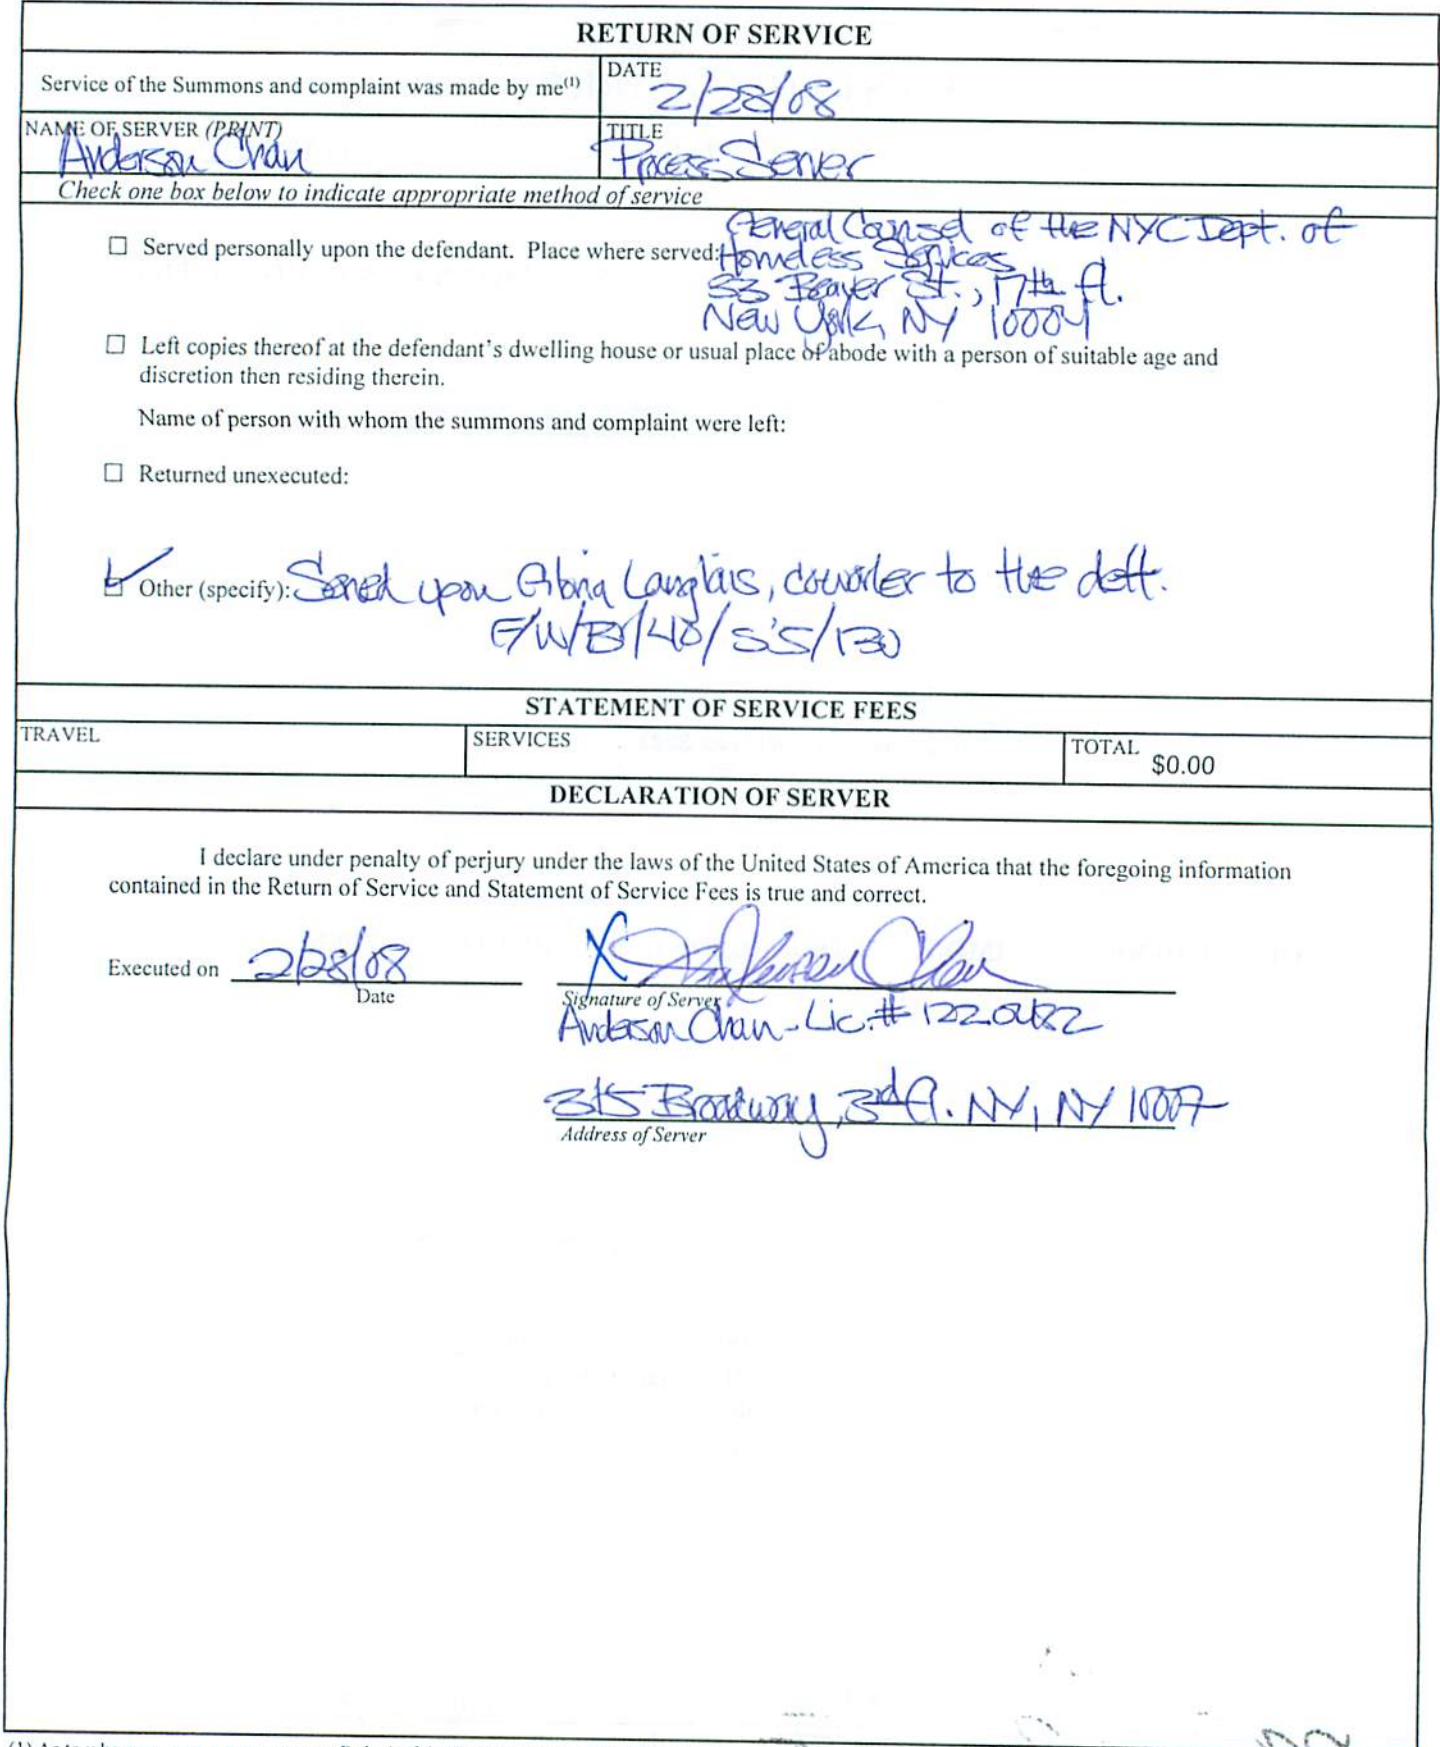 RETURN OF SERVICE
Service of the Summons and complaint was made by me(1)
DATE
2/28/08
NAME OF SERVER (PRINT)
Anderson Chan
TITLE
Process Server
Check one box below to indicate appropriate method of service
General Counsel of the NYC Dept. of
☐ Served personally upon the defendant. Place where served: Homeless Services
33 Beaver St., 17th fl.
New York, NY 10004
☐ Left copies thereof at the defendant's dwelling house or usual place of abode with a person of suitable age and
discretion then residing therein.
Name of person with whom the summons and complaint were left:
☐ Returned unexecuted:
☑ Other (specify): Served upon Gloria Langlais, coworker to the deft.
F/W/Br/40/5'5/130
STATEMENT OF SERVICE FEES
TRAVEL
SERVICES
TOTAL
$0.00
DECLARATION OF SERVER
I declare under penalty of perjury under the laws of the United States of America that the foregoing information
contained in the Return of Service and Statement of Service Fees is true and correct.
Executed on 2/28/08
Date
X Anderson Chan
Signature of Server
Anderson Chan - Lic. #
315 Broadway, 3rd fl. NY, NY 10007
Address of Server